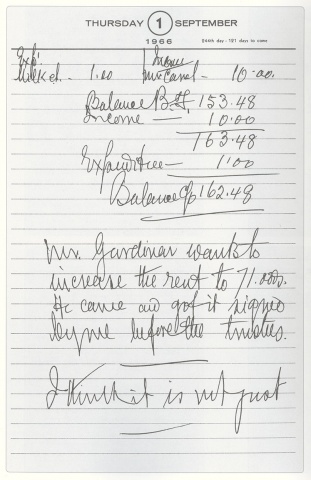 THURSDAY 1 SEPTEMBER
1966 244th day - 121 days to come
Exp: Income
1.00 10.00.
Balance B.f. 153.48
Income — 10.00
163.48
Expenditure — 1.00
Balance c/o 162.48
Mr. Gardinar wants to
increase the rent to 71.
He came and got it signed
by me before the trusties.
I think it is not just